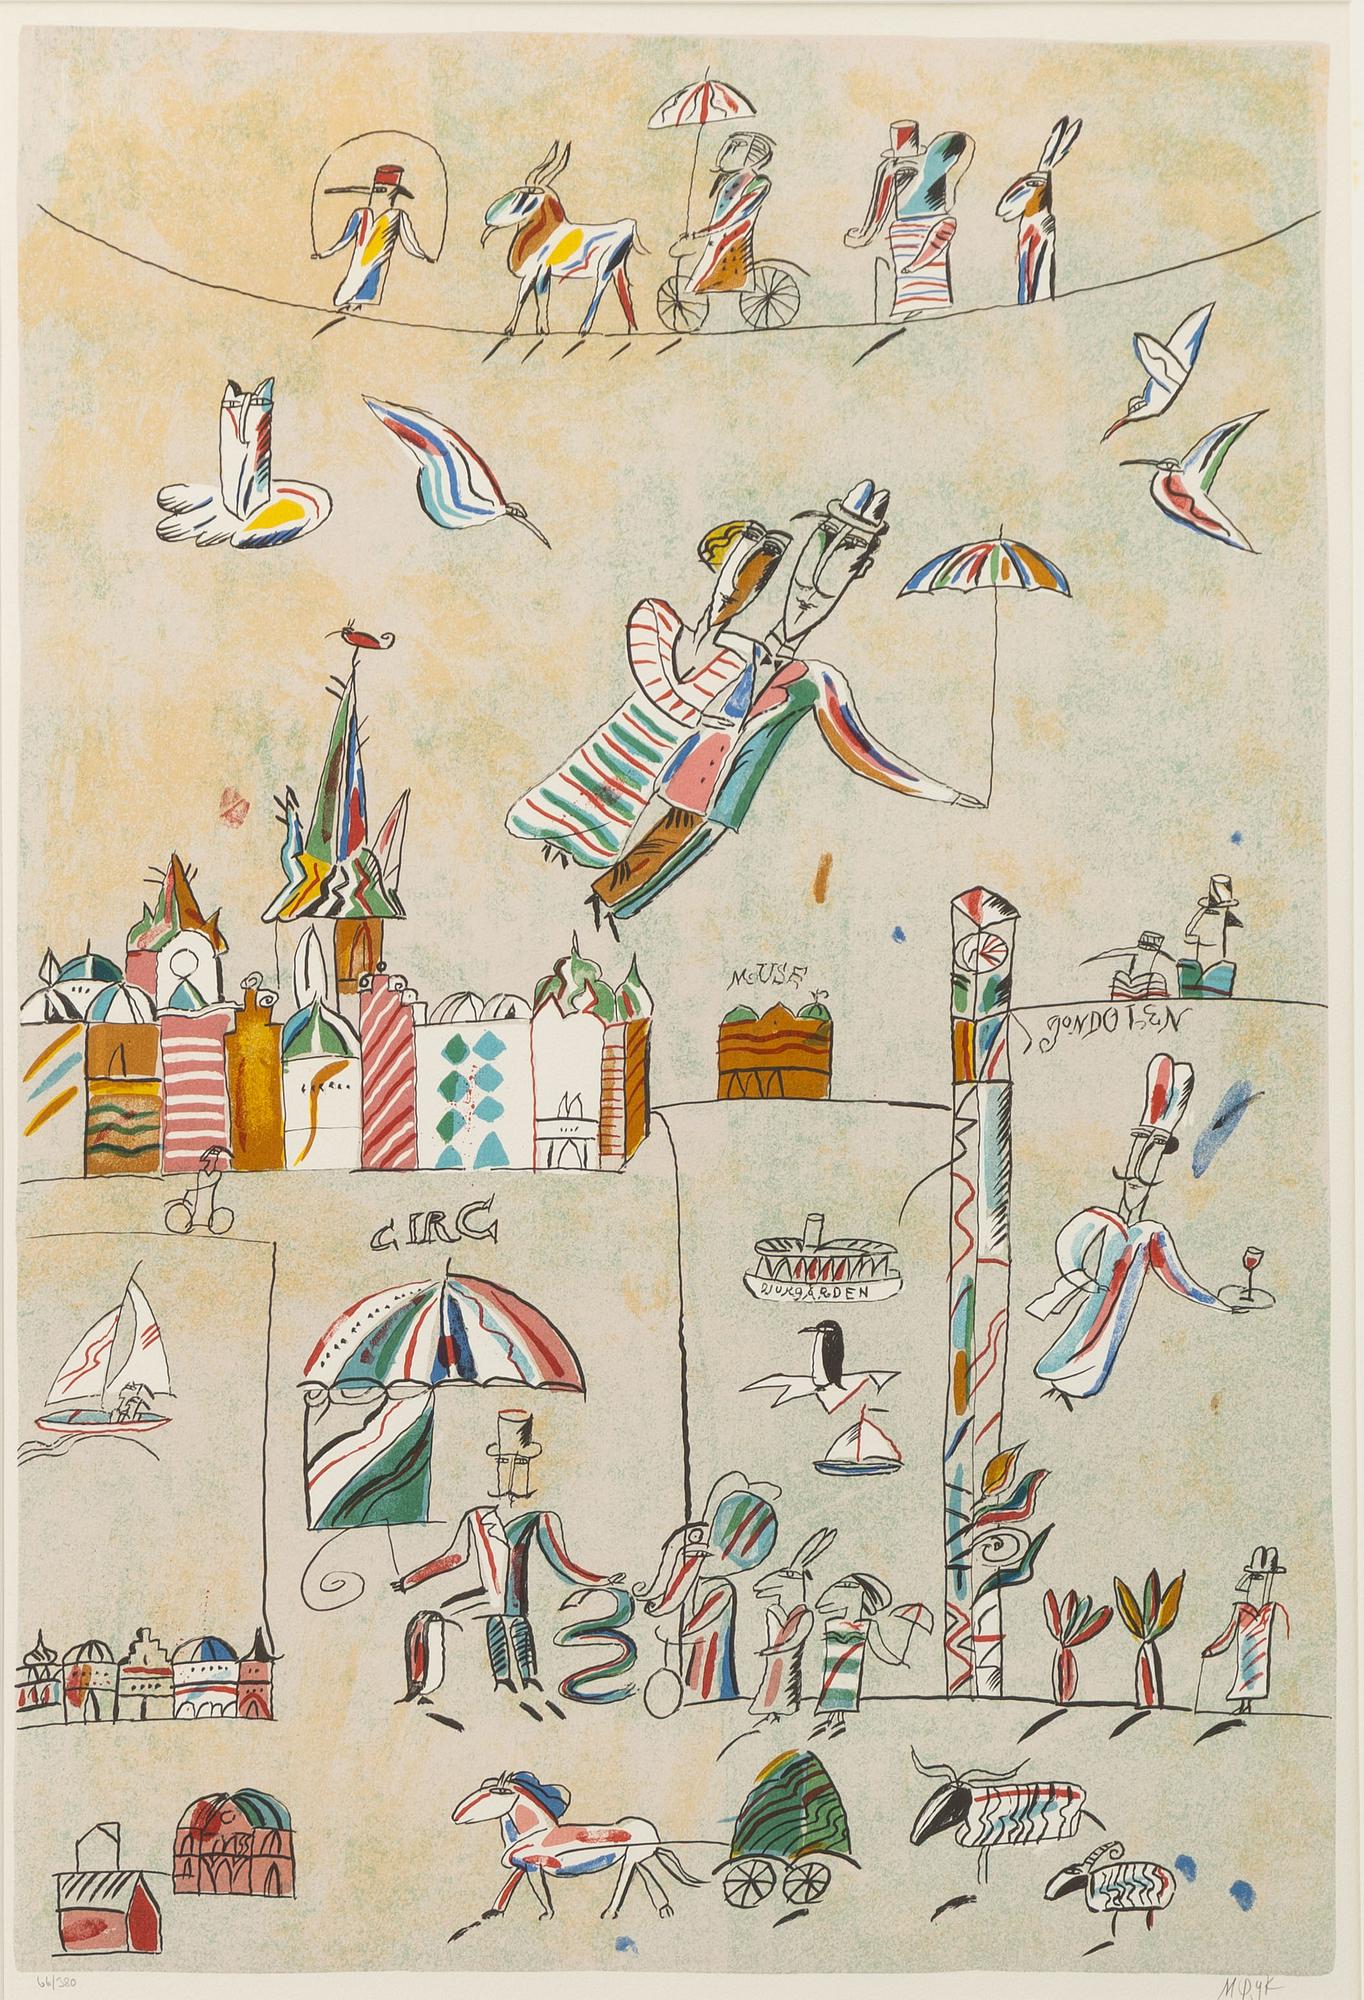 MOUSE
GONDOLEN
CIRC
DJURGÅRDEN
66/380